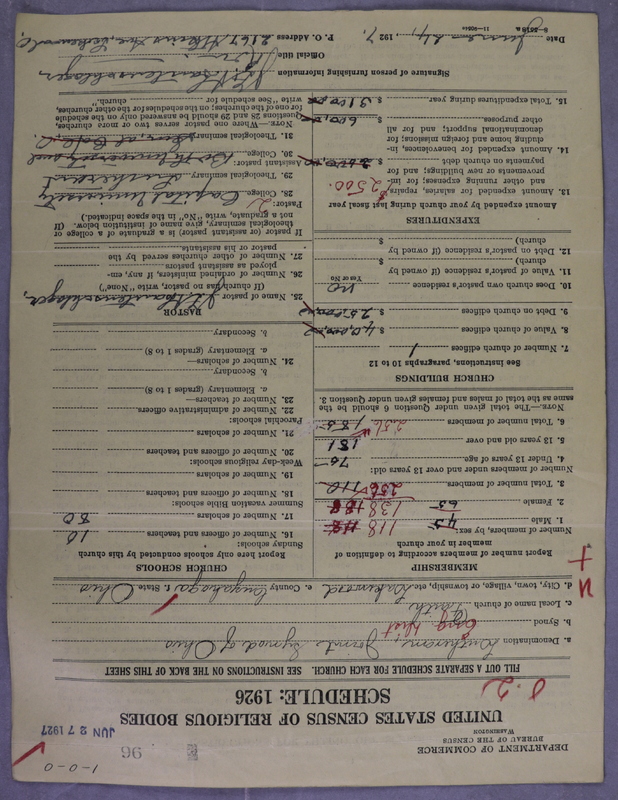 1-0-0
DEPARTMENT OF COMMERCE
BUREAU OF THE CENSUS
WASHINGTON
96
JUN 27 1927
UNITED STATES CENSUS OF RELIGIOUS BODIES
SCHEDULE: 1926
FILL OUT A SEPARATE SCHEDULE FOR EACH CHURCH. SEE INSTRUCTIONS ON THE BACK OF THIS SHEET
a. Denomination Lutheran Joint Synod of Ohio
b. Synod
c. Local name of church Faith
d. City, town, village, or township, etc. Lakewood e. County Cuyahoga f. State Ohio
MEMBERSHIP
Report number of members according to definition of
member in your church
Number of members, by sex:
1. Male 118
2. Female 138
3. Total number of members 256
Number of members under and over 13 years old:
4. Under 13 years of age. 70
5. 13 years old and over 181
6. Total number of members 256
NOTE.—The total given under Question 6 should be the
same as the total of males and females given under Question 3.
CHURCH BUILDINGS
See instructions, paragraphs 10 to 12
7. Number of church edifices 1
8. Value of church edifices $ 40,000
9. Debt on church edifices $ 25,000
10. Does church own pastor's residence No
Yes or No
11. Value of pastor's residence (if owned by
church) $
12. Debt on pastor's residence (if owned by
church) $
EXPENDITURES
Amount expended by your church during last fiscal year
13. Amount expended for salaries, repairs,
and other running expenses; for im-
provements or new buildings; and for
payments on church debt $ 2500.
14. Amount expended for benevolences, in-
cluding home and foreign missions; for
denominational support; and for all
other purposes. 600
15. Total expenditures during year $ 3100
CHURCH SCHOOLS
Report here only schools conducted by this church
Sunday schools:
16. Number of officers and teachers 10
17. Number of scholars 80
Summer vacation Bible schools:
18. Number of officers and teachers
19. Number of scholars
Week-day religious schools:
20. Number of officers and teachers
21. Number of scholars
Parochial schools:
22. Number of administrative officers.
23. Number of teachers—
a. Elementary (grades 1 to 8)
b. Secondary
24. Number of scholars—
a. Elementary (grades 1 to 8)
b. Secondary
PASTOR
25. Name of pastor
(If church has no pastor, write "None")
26. Number of ordained ministers, if any, em-
ployed as assistant pastors
27. Number of other churches served by the
pastor or his assistants.
If pastor (or assistant pastor) is a graduate of a college or
theological seminary, give name of institution below. (If
not a graduate, write "No" in the space indicated.)
Pastor: 2
28. College Capital University
29. Theological seminary Lutheran
Assistant pastor:
30. College
31. Theological seminary
NOTE.—Where one pastor serves two or more churches,
Questions 28 and 29 should be answered only on the schedule
for one of the churches; on the schedules for the other churches,
write "See schedule for church."
Signature of person furnishing information
Official title
P. O. Address 2147 Atkins Ave, Lakewood, O.
Date June 24, 1927.